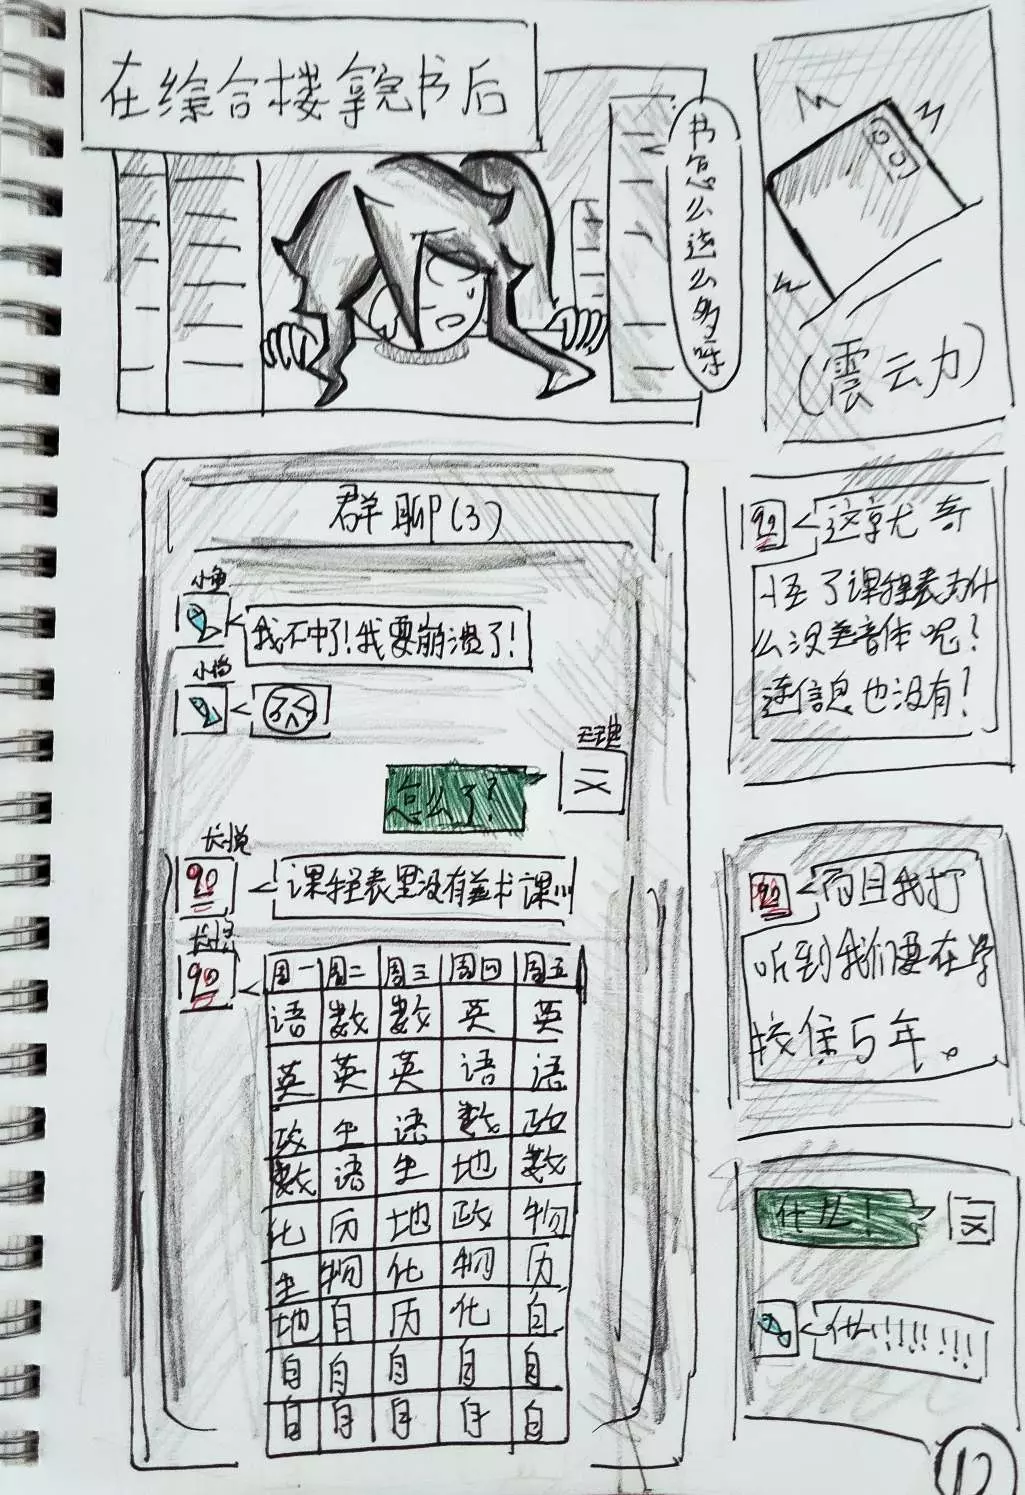 在综合楼拿完书后
书怎么这么多呀
(震云力)
群聊(3)
小鱼
我不中了!我要崩溃了!
怎么了?
长悦
90
课程表里没有美术课
90
周一 周二 周三 周四 周五
语 数 数 英 英
英 英 英 语 语
政 生 语 数 政
数 语 生 地 数
化 历 地 政 物
生 物 化 物 历
地 自 历 化 自
自 自 自 自 自
自 自 自 自 自
90
这就尤奇
了课程表为什
么没美音体呢?
连信息也没有?
90
而且我打
听到我们要在学
校住5年。
什么!
什么!!!!!!!
12